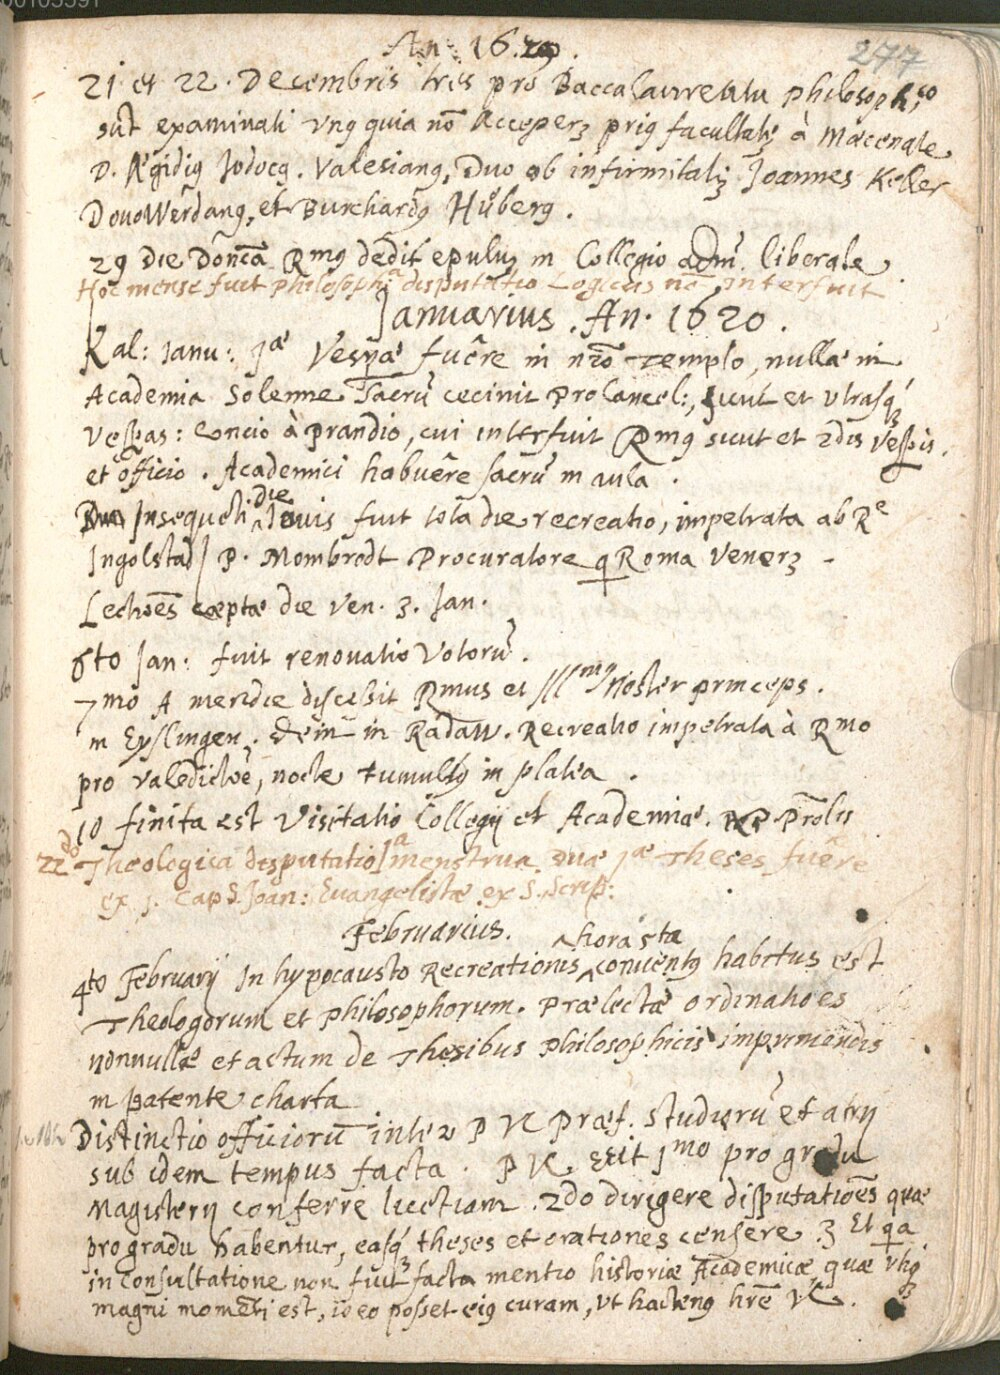 An. 16.19.
277
21 et 22. Decembris tres pro Baccalaureatu philosophico
sūt examinati vnq quia nō Acceperʒ priq facultatē à Mæcenate
D. Ægidiq Jodocq. Valesianq, Duo ob infirmitatē Joannes Keller
DonoWerdanq, et Burchardq Hüberq.
29 Die Dōnicā Rmq dedit epulū in Collegio adm̄ liberale.
Hoc mense fuit philosophica disputatio Logicus nō interfuit
Januarius. An. 1620.
Kal: Janu: 1æ Vespæ fuêre in nrō Templo, nullæ in
Academia Solenne Sacrū cecinit Procancel:, sicut et vtrasq
vespas: Concio à prandio, cui interfuit Rmq sicut et 2dis vespis.
et officio. Academici habuêre sacrū in aula.
Insequēti die Jouis fuit tota die recreatio, impetrata ab Re
Ingolstad P. Mombrodt Procuratore q Roma Venerʒ -
Lectiōes cæptæ die Ven. 3. Jan.
6to Jan: fuit renouatio Votorū.
7mo A meridie discessit Rmus et Illmq Noster princeps.
in Eyslingen. dein in Radaw. Recreatio impetrata à Rmo
pro valedictiōe, nocte tumultq in platea.
10 finita est Visitatio Collegij et Academiæ. Prālis
22do Theologica disputatio 1a menstrua Duæ 1æ Theses fuêre
ex 1. Cap S. Joan: Euangelistæ ex S. Scrip:
Februarius.
hora 5ta
4to Februarij In hypocausto Recreationis conuentq habitus est
Theologorum et Philosophorum. Prælectæ ordinatioēs
nonnullæ et actum de Thesibus Philosophicis imprimendis
in patente charta
Distinctio officiorū inter P K Præf. Studiorū et alij
sub idem tempus facta. P K. erit 1mo pro gradu
Magisterij conferre licētiam. 2do dirigere disputatiōes quæ
pro gradu habentur, easq theses et orationes censere. 3 Et qa
in Consultatione non fuit facta mentio historiæ Academicæ, quæ
magni momēti est, ideo posset eiq curam, vt hactenq hrē K.